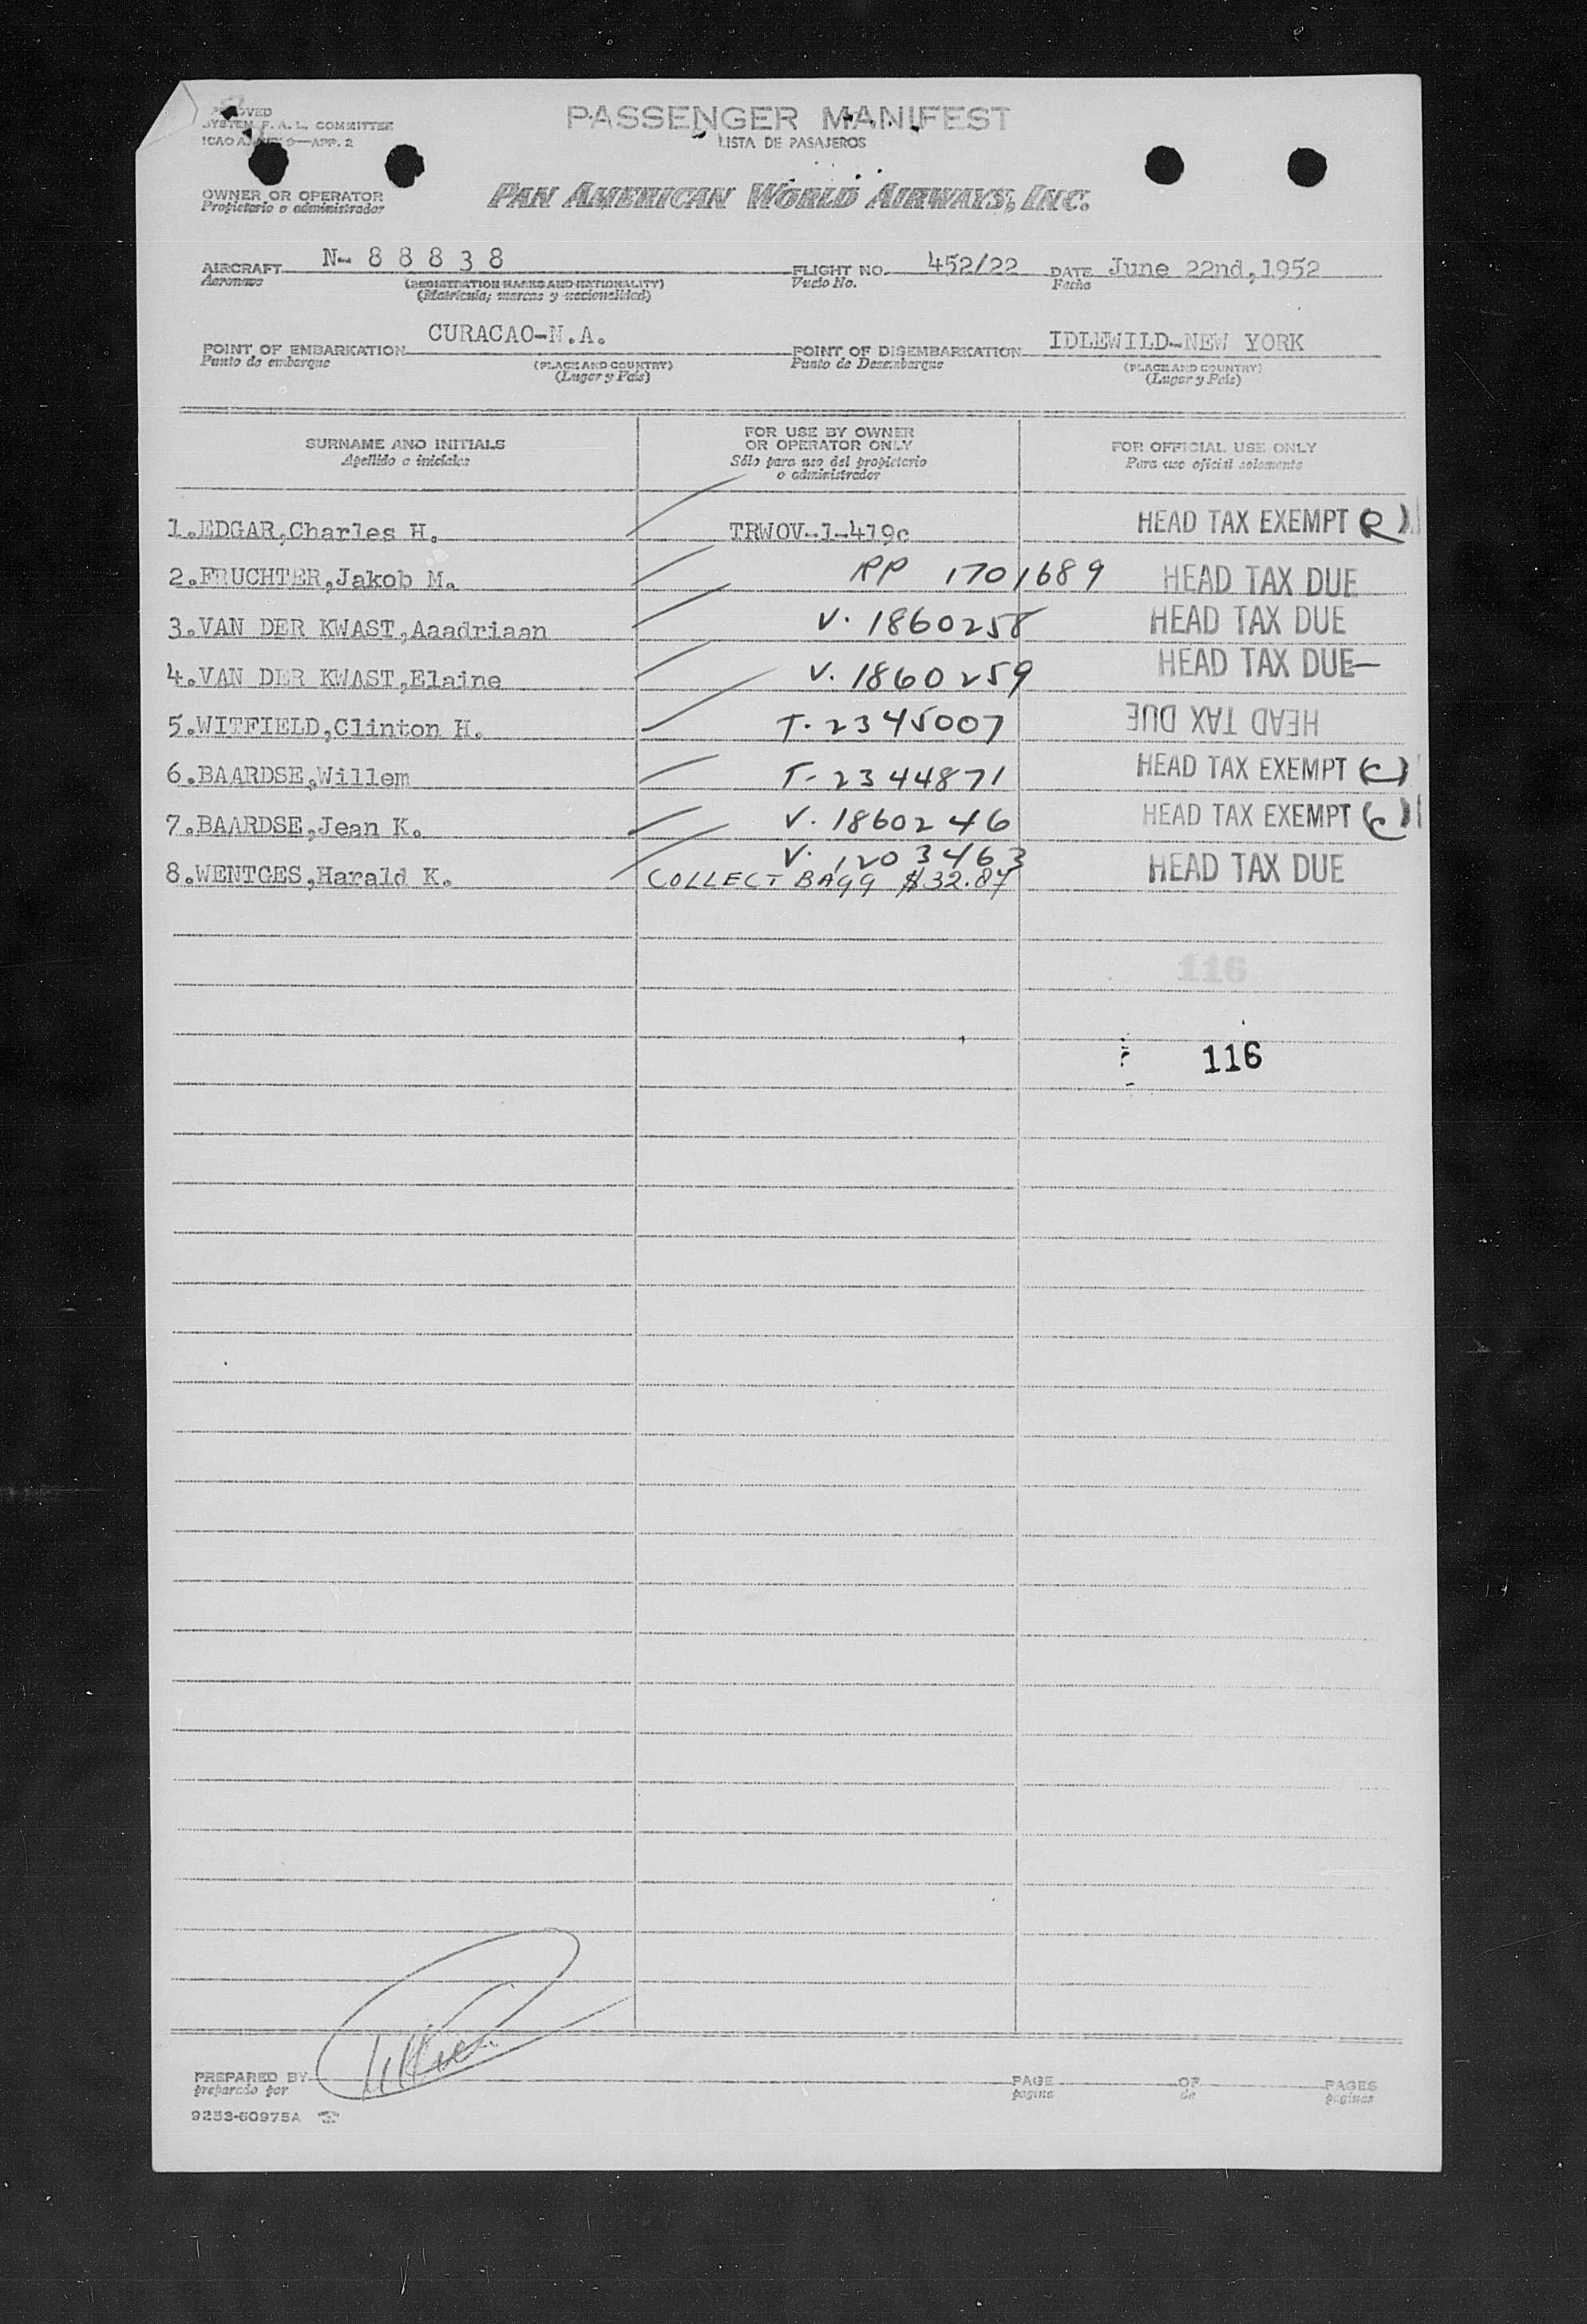 PASSENGER MANIFEST
LISTA DE PASAJEROS
SYSTEM F. A. L. COMMITTEE
ICAO 9—APP. 2
OWNER OR OPERATOR
Propietario o administrador
PAN AMERICAN WORLD AIRWAYS, INC.
AIRCRAFT N-88838 FLIGHT NO. 452/22 DATE June 22nd,1952
Aeronave (REGISTRATION MARKS AND NATIONALITY) Vuelo No. Fecha
(Matrícula; marcas y nacionalidad)
POINT OF EMBARKATION CURACAO-N.A. POINT OF DISEMBARKATION IDLEWILD-NEW YORK
Punto de embarque (PLACE AND COUNTRY) Punto de Desembarque (PLACE AND COUNTRY)
(Lugar y País) (Lugar y País)
SURNAME AND INITIALS FOR USE BY OWNER OR OPERATOR ONLY FOR OFFICIAL USE ONLY
Apellido e iniciales Sólo para uso del propietario o administrador Para uso oficial solamente
1.EDGAR,Charles H. TRWOV-1-419c HEAD TAX EXEMPT (R)
2.FRUCHTER,Jakob M. RP 1701689 HEAD TAX DUE
3.VAN DER KWAST,Aaadriaan V. 1860258 HEAD TAX DUE
4.VAN DER KWAST,Elaine V. 1860259 HEAD TAX DUE
5.WITFIELD,Clinton H. T-2345007 HEAD TAX DUE
6.BAARDSE,Willem T-2344871 HEAD TAX EXEMPT (C)
7.BAARDSE,Jean K. V. 1860246 HEAD TAX EXEMPT (C)
V. 1203463
8.WENTGES,Harald K. COLLECT BAGG $32.87 HEAD TAX DUE
116
116
PREPARED BY PAGE OF PAGES
preparado por página de páginas
9253-60975A